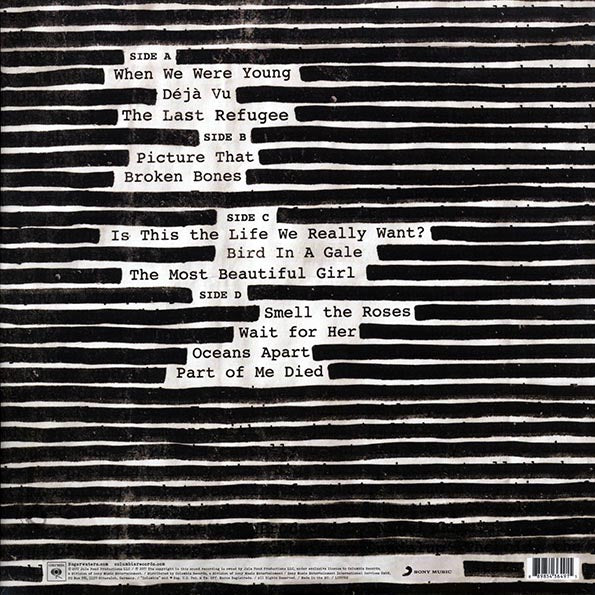 SIDE A
When We Were Young
Déjà Vu
The Last Refugee
SIDE B
Picture That
Broken Bones
SIDE C
Is This the Life We Really Want?
Bird In A Gale
The Most Beautiful Girl
SIDE D
Smell the Roses
Wait for Her
Oceans Apart
Part of Me Died
rogerwaters.com columbiarecords.com
SONY MUSIC